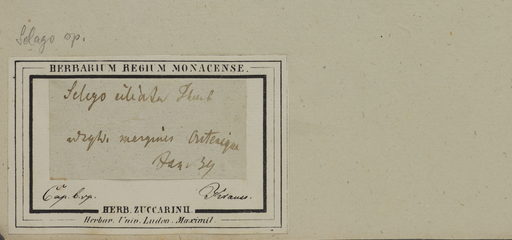 Selago sp.
HERBARIUM REGIUM MONACENSE.
Selago ciliata
margines Outeniqua
Jan. 39
Cap. b. sp. Krauss.
HERB. ZUCCARINII.
Herbar. Univ. Ludov. Maximil.